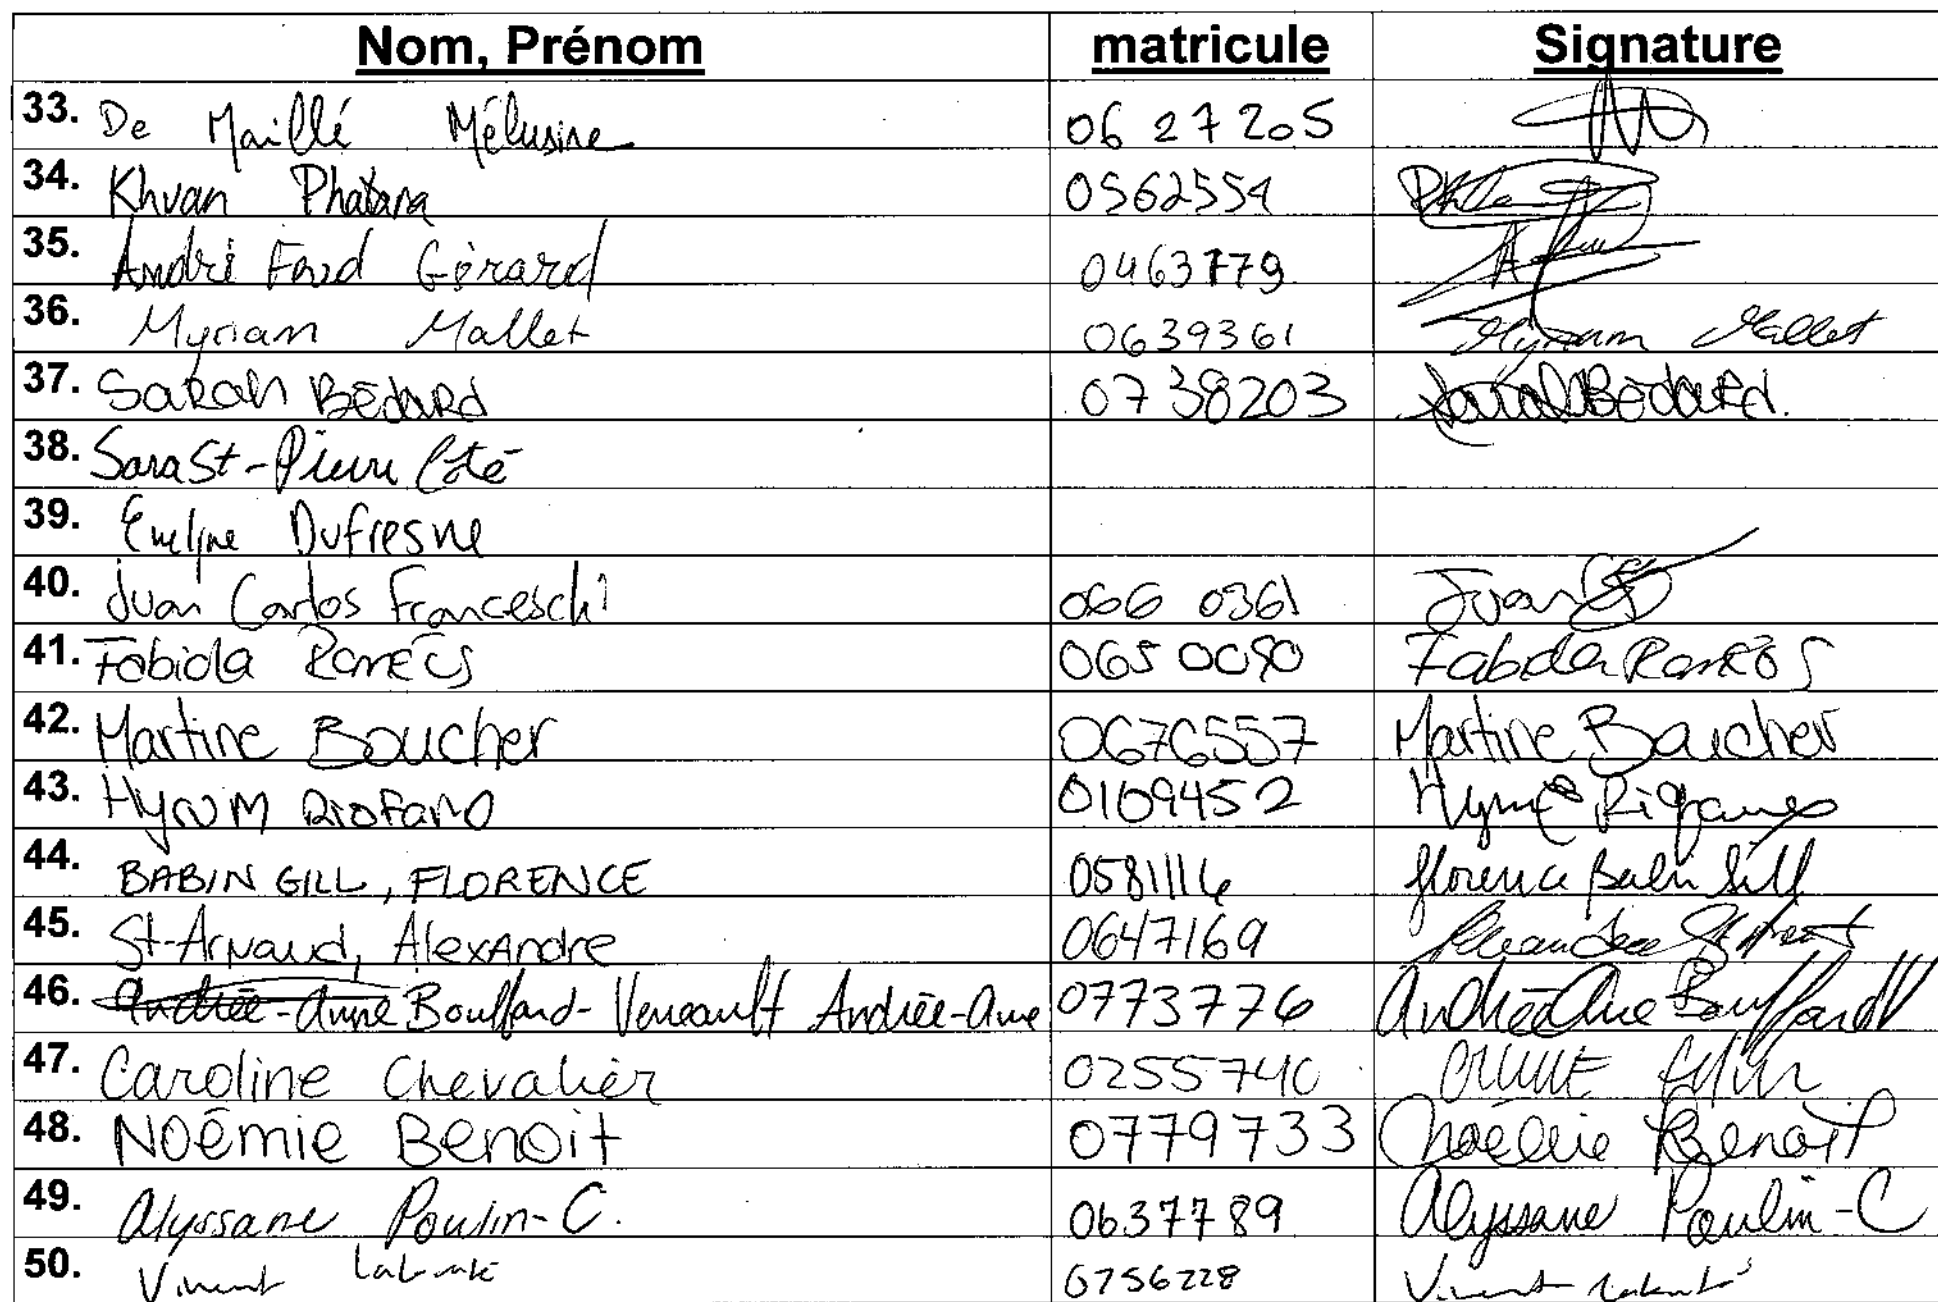 Nom, Prénom matricule Signature
33. De Maillé Mélusine 06 27 205
34. Khvan Phatana 0562554
35. André Gérard 0463779
36. Myriam Mallet 0639361 Myriam Mallet
37. Sarah Bédard 07 38203 Sarah Bédard.
38. Sara St-Pierre Côté
39. Eveline Dufresne
40. Juan Carlos Franceschi 066 0361 Juan
41. Fabiola 065 0080 Fabiola
42. Martine Boucher 0676557 Martine Boucher
43. Hyrum 0169452
44. BABIN GILL, FLORENCE 0581116 Florence Babin Gill
45. St-Arnaud, Alexandre 0647169 Alexandre
46. Andrée-Anne Bouffard- Andrée-Anne 0773776 Andrée Anne Bouffard
47. Caroline Chevalier 0255740
48. Noémie Benoit 0779733 Noémie Benoit
49. Alyssane Poulin-C. 0637789 Alyssane Poulin-C
50. Vincent 0756228 Vincent